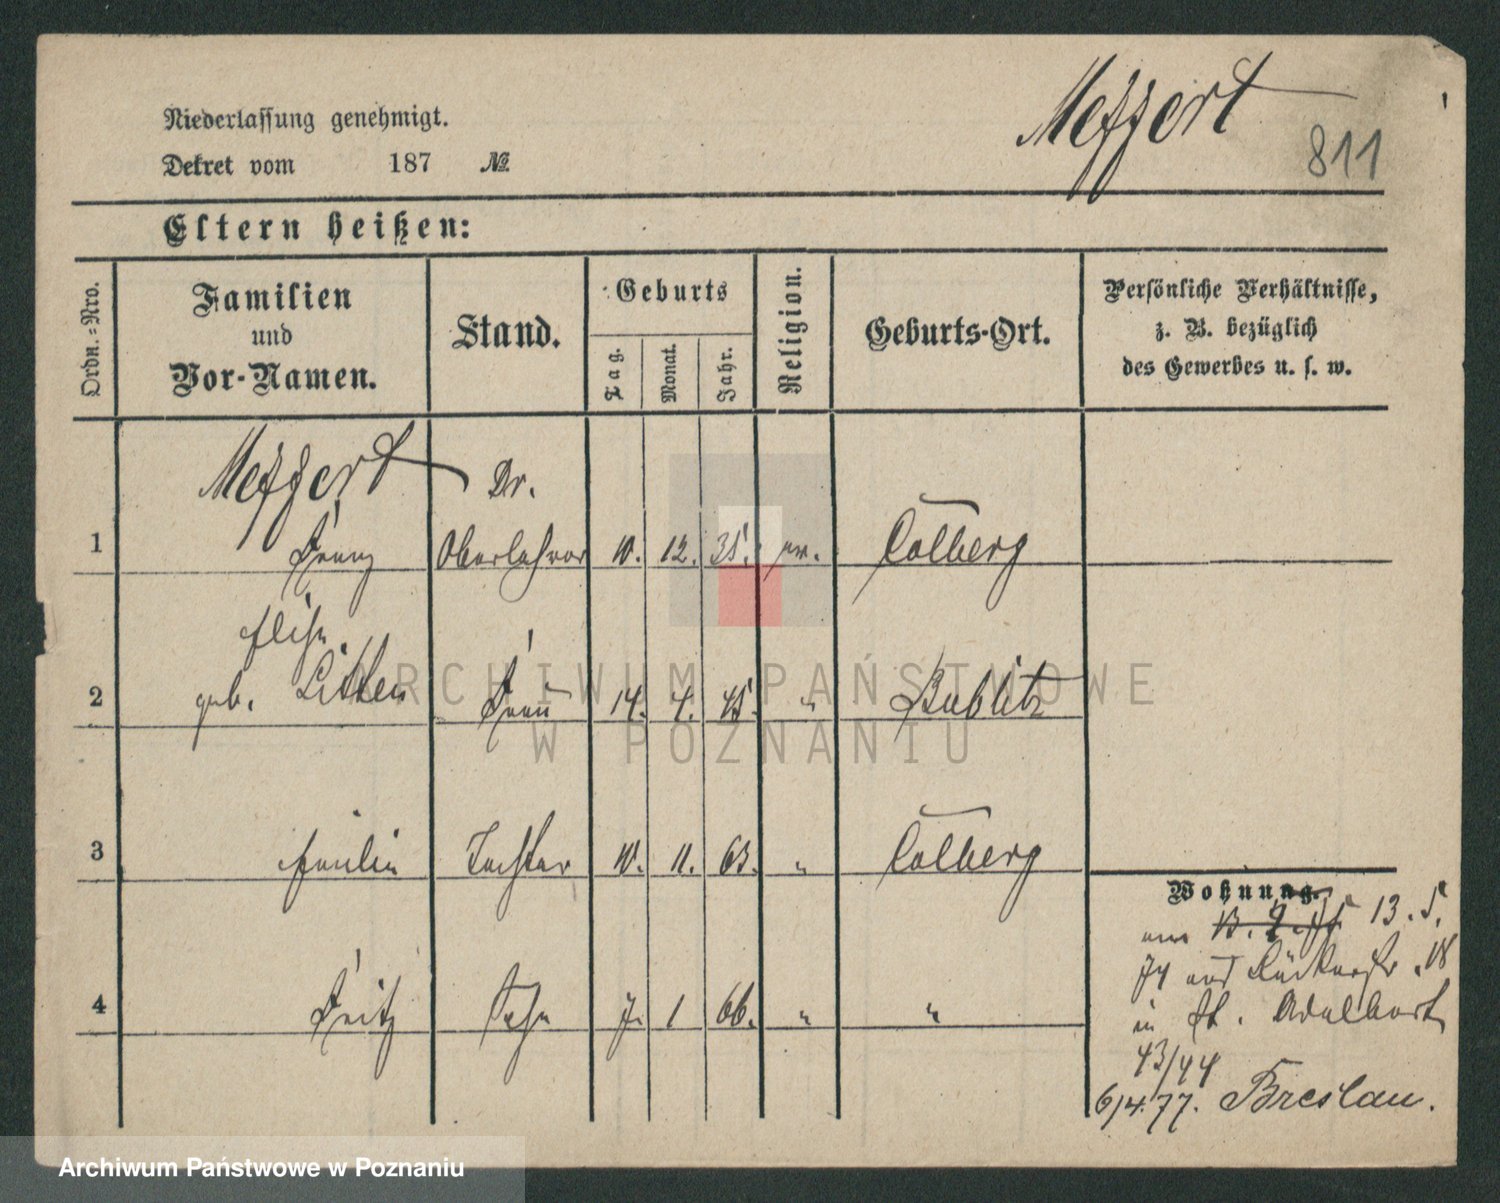 Meffert
811
Niederlassung genehmigt.
Dekret vom 187 №
Eltern heißen:
Ordn.=Nro.
Familien
und
Vor-Namen.
Stand.
Geburts
Tag.
Monat.
Jahr.
Religion.
Geburts-Ort.
Persönliche Verhältnisse,
z. B. bezüglich
des Gewerbes u. s. w.
Meffert Dr.
1 Franz Oberlehrer 10. 12. 35. ev. Colberg
Elise
2 geb. Litten Frau 14. 4. 45. " Bublitz
3 Tochter 10. 11. 63. " Colberg
4 Fritz Sohn 7. 1 66. " "
Wohnung.
13. 5.
74 aus 18
in St. Adalbert
43/44
6/4.77. Breslau.
ARCHIWUM PAŃSTWOWE
W POZNANIU
Archiwum Państwowe w Poznaniu